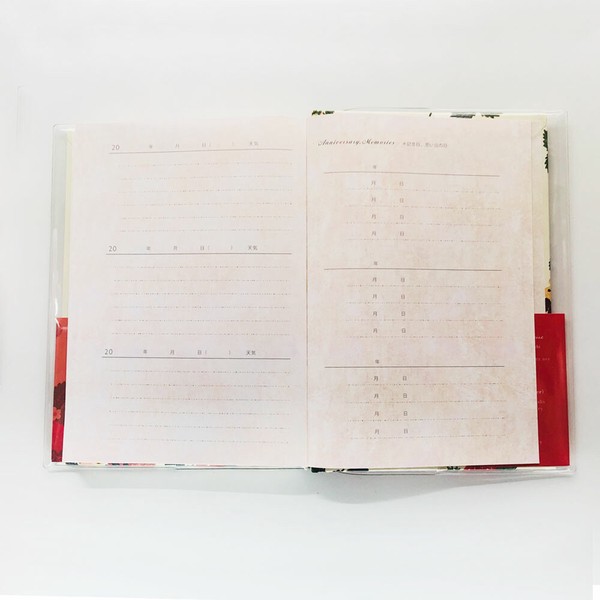 20 年 月 日( ) 天気
20 年 月 日( ) 天気
20 年 月 日( ) 天気
Anniversary Memories
年
月 日
月 日
月 日
月 日
年
月 日
月 日
月 日
月 日
年
月 日
月 日
月 日
月 日